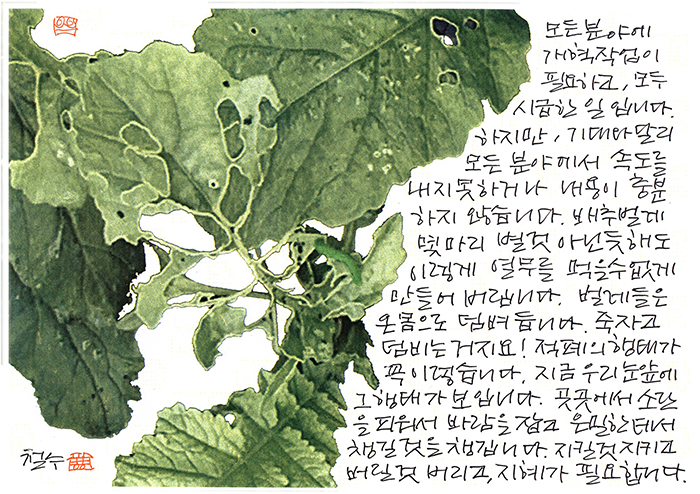 모든 분야에
개혁작업이
필요하고, 모두
시급한 일 입니다.
하지만, 기대와 달리
모든 분야에서 속도를
내지 못하거나 내용이 충분
하지 않습니다. 배추벌레
몇 마리 별것 아닌듯해도
이렇게 열무를 먹을수 없게
만들어 버립니다. 벌레들은
온몸으로 덤벼 듭니다. 죽자고
덤비는 거지요! 적폐의 행태가
꼭 이렇습니다. 지금 우리 눈앞에
그 행태가 보입니다. 곳곳에서 소란
을 피워서 바람을 잡고 은밀한 데서
챙길 것을 챙깁니다. 지킬것 지키고
버릴것 버리고, 지혜가 필요합니다.
철수